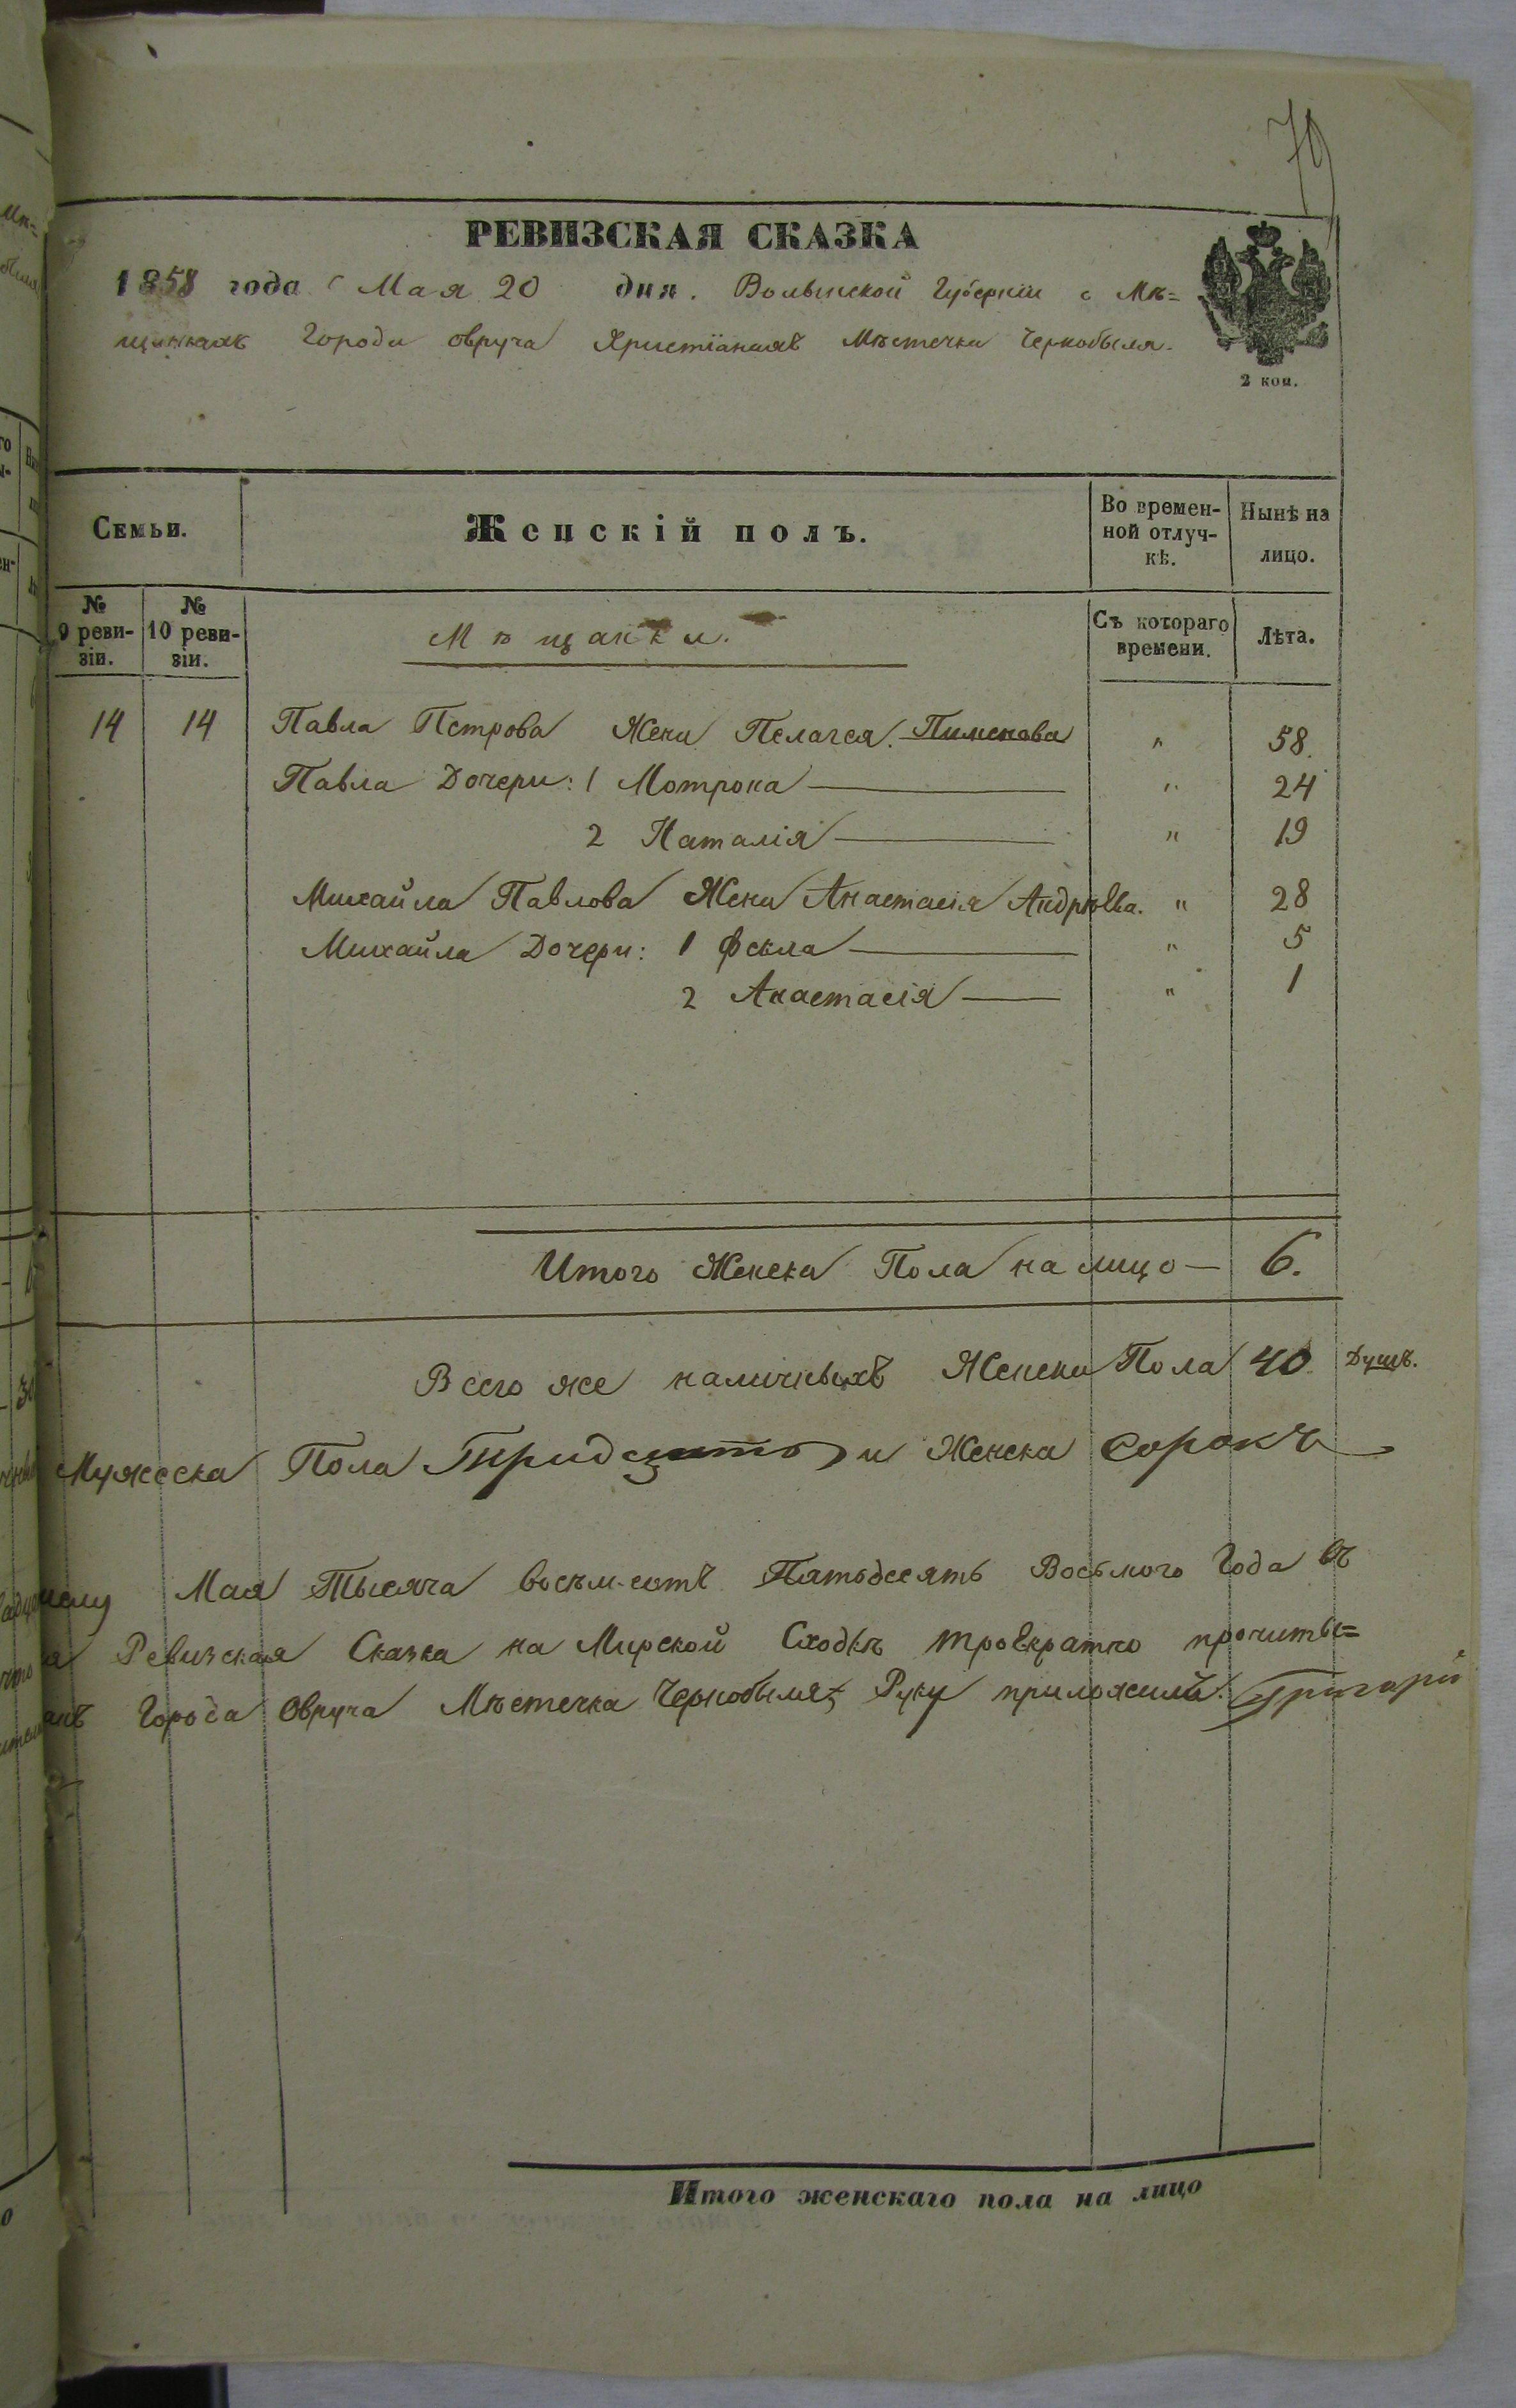 79
РЕВИЗСКАЯ СКАЗКА
1858 года Мая 20 дня. Волынской Губерніи о Мѣ=
щанкахъ Города овруча Христіанахъ Мѣстечка Чернобыля.
2 коп.
Семьи.
Женскій полъ.
Во времен-
ной отлуч-
кѣ.
Нынѣ на
лицо.
№
9 реви-
зіи.
№
10 реви-
зіи.
Мѣщанки.
Съ котораго
времени.
Лѣта.
14 14 Павла Петрова Жена Пелагея Пименова " 58.
Павла Дочери: 1 Мотрона " 24
2 Наталія " 19
Михайла Павлова Жена Анастасія Андрѣева. " 28
Михайла Дочери: 1 Фекла " 5
2 Анастасія " 1
Итого Женска Пола на лицо — 6.
Всего же наличныхъ Женска Пола 40 Душъ.
Мужеска Пола Тридцать и Женска сорокъ
Мая Тысяча восѣм-сотъ Пятьдесятъ Восьмого Года въ
Ревизская Сказка на Мирской Сходкѣ троекратно прочиты=
Города Овруча Мѣстечка Чернобыля, Руку приложилъ. Григорій
Итого женскаго пола на лицо